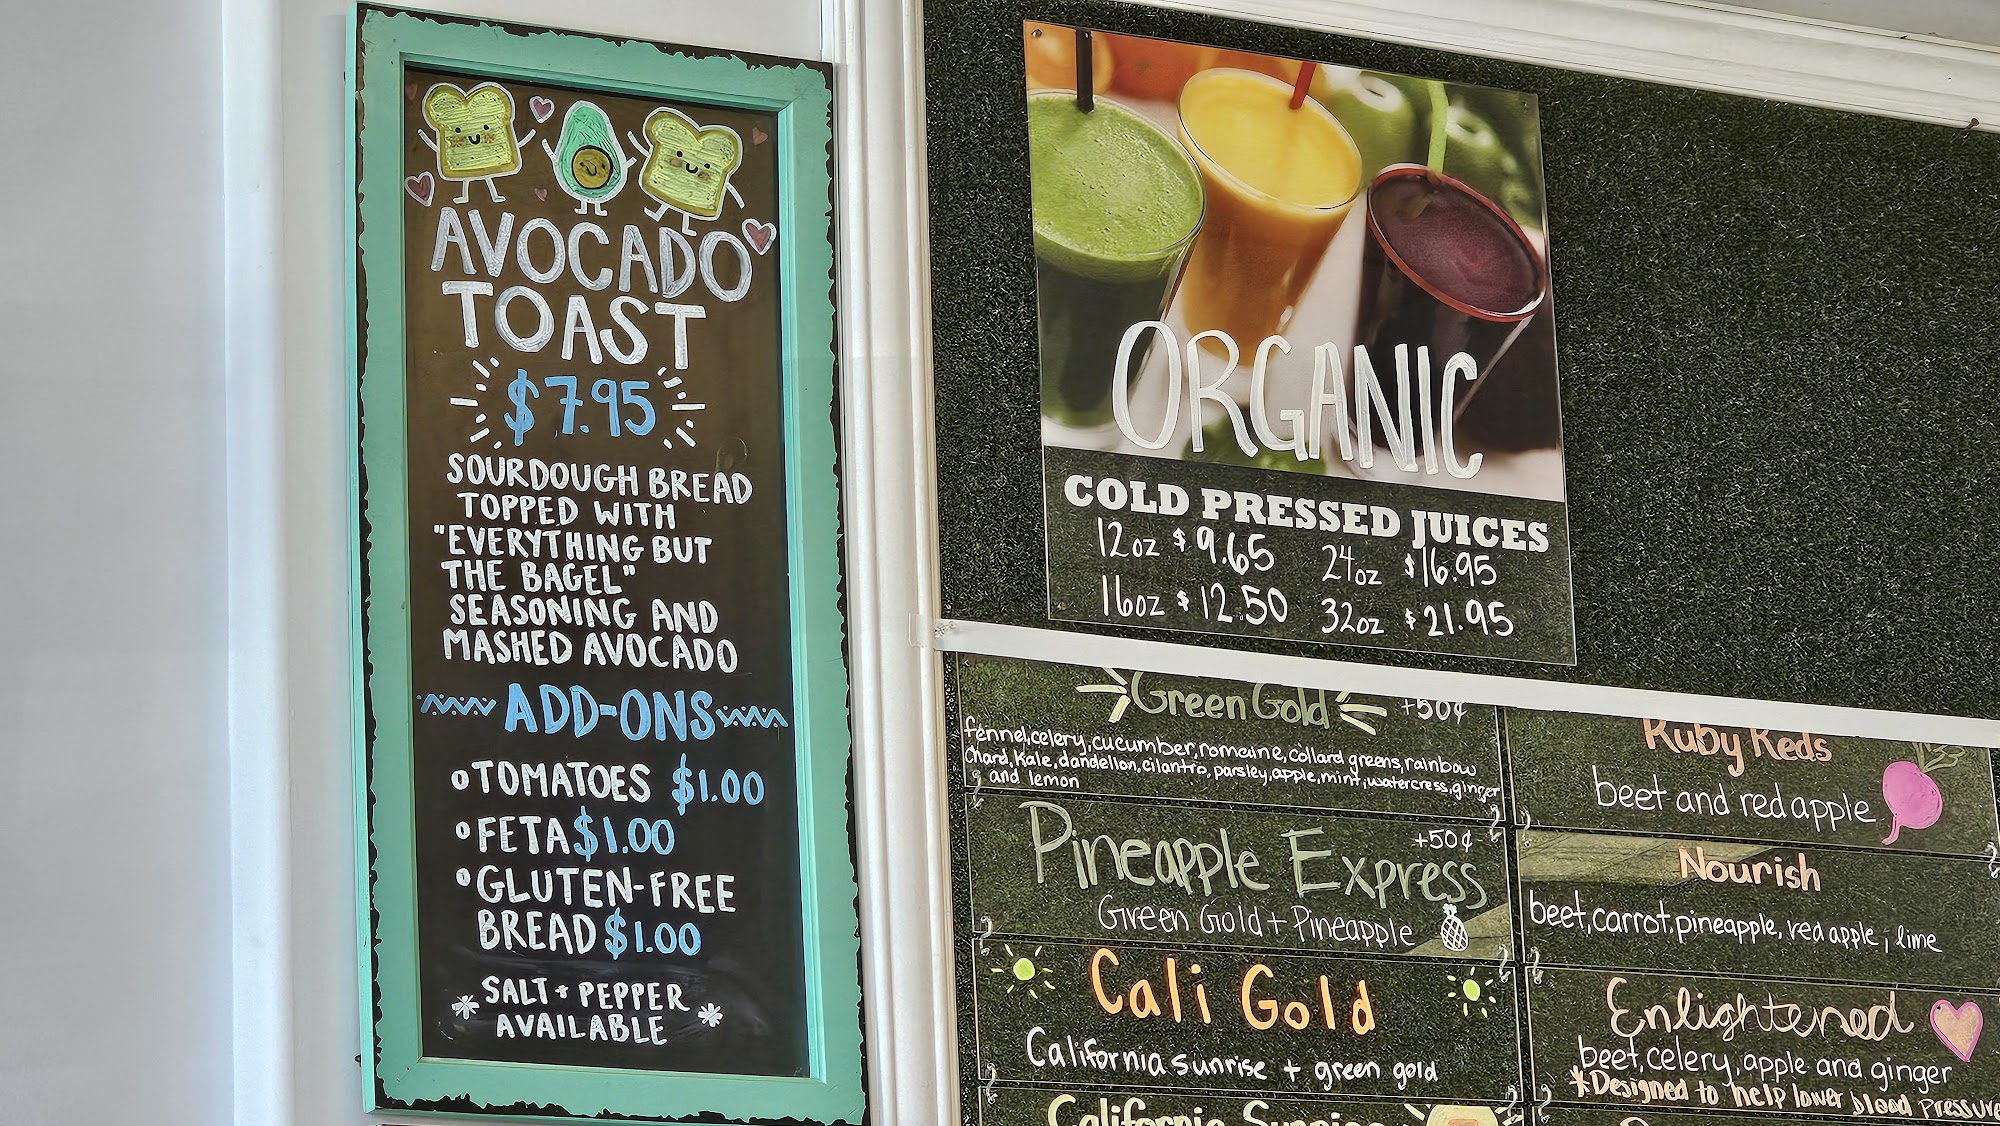 AVOCADO
TOAST
$7.95
SOURDOUGH BREAD
TOPPED WITH
"EVERYTHING BUT
THE BAGEL"
SEASONING AND
MASHED AVOCADO
ADD-ONS
TOMATOES $1.00
FETA $1.00
GLUTEN-FREE
BREAD $1.00
*SALT + PEPPER*
AVAILABLE
ORGANIC
COLD PRESSED JUICES
12oz $9.65 24oz $16.95
16oz $12.50 32oz $21.95
Green Gold +50¢
fennel, celery, cucumber, romaine, collard greens, rainbow
Chard, Kale, dandelion, cilantro, parsley, apple, mint, watercress, ginger
and lemon
Pineapple Express +50¢
Green Gold + Pineapple
Cali Gold
California sunrise + green gold
California Sunrise
Ruby Reds
beet and red apple
Nourish
beet, carrot, pineapple, red apple, lime
Enlightened
beet, celery, apple and ginger
*Designed to help lower blood pressure